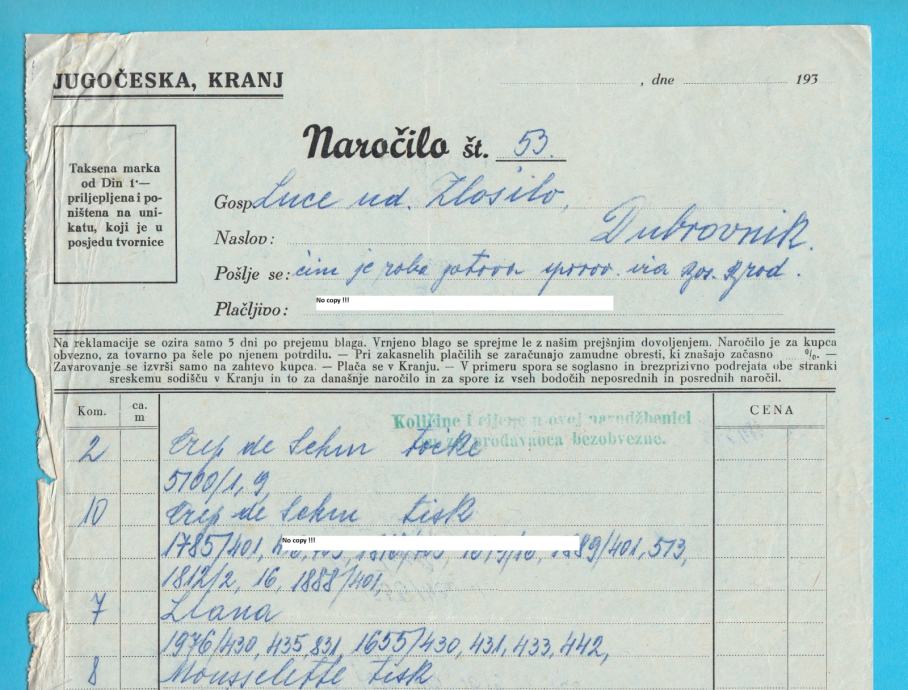 JUGOČESKA, KRANJ
, dne 193
Naročilo št. 53.
Taksena marka
od Din 1·—
priljepljena i po-
ništena na uni-
katu, koji je u
posjedu tvornice
Gosp. Luce ud. Zlošilo,
Naslov: Dubrovnik.
Pošlje se: čim je roba gotova via Brod.
Plačljivo: No copy !!!
Na reklamacije se ozira samo 5 dni po prejemu blaga. Vrnjeno blago se sprejme le z našim prejšnjim dovoljenjem. Naročilo je za kupca
obvezno, za tovarno pa šele po njenem potrdilu. — Pri zakasnelih plačilih se zaračunajo zamudne obresti, ki znašajo začasno %. —
Zavarovanje se izvrši samo na zahtevo kupca. — Plača se v Kranju. — V primeru spora se soglasno in brezprizivno podrejata obe stranki
sreskemu sodišču v Kranju in to za današnje naročilo in za spore iz vseh bodočih neposrednih in posrednih naročil.
Kom. ca. m CENA
Količine i cijene u ovoj narudžbenici
prodavaoca bezobvezne.
2 Crep de Schin točke
5100/1, 9
10 Crep de Schin tisk
No copy !!!
1785/401, 1889/401, 513,
1812/2, 16, 1888/401,
7 Liana
1976/430, 435, 831, 1655/430, 431, 433, 442,
8 Mousselette tisk